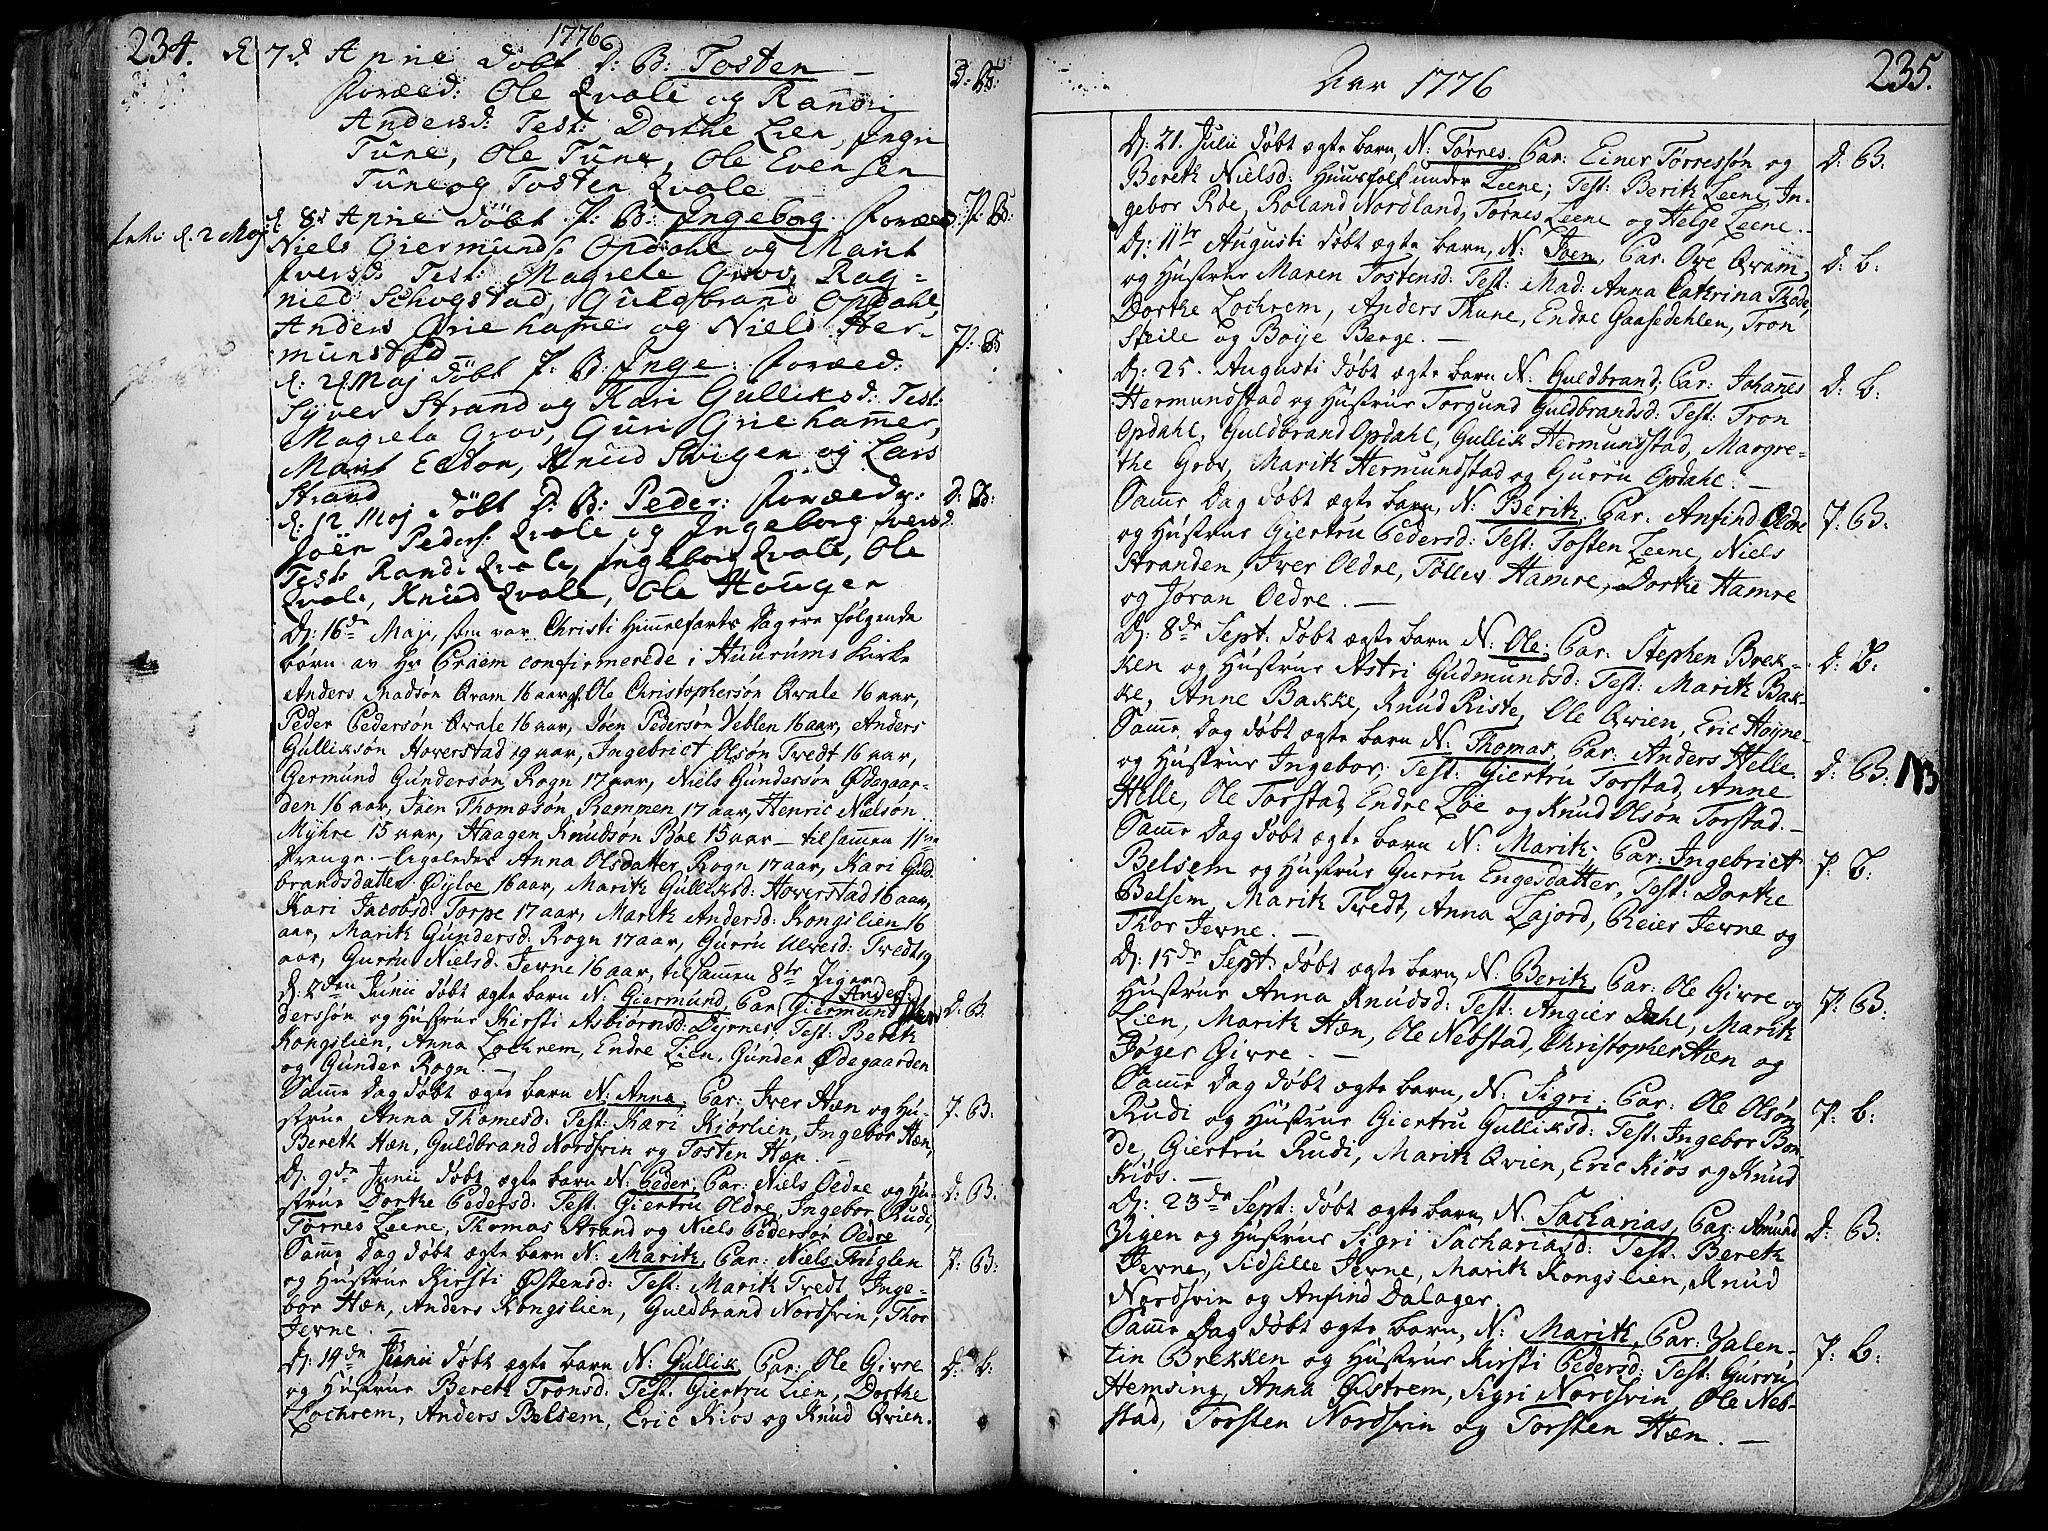 234.
1776
d 7d Aprie döbt D: B: Tosten —
Foræld: Ole Qvale og Randi
Andersd: Test: Dorthe Lien, Ingri
Tune, Ole Tune, Ole Evensen
Tune og Tosten Qvale
D: B:
d 8d Aprie döbt P: B: Ingeborg. Foræld:
P: B:
Intr: d. 2 Maj
Niels Giermunds: Opdahl og Marit
Iversd: Test: Magrete Grov, Rag-
nied Schogstad, Gulgbrand Opdahl,
Anders Griehamer og Niels Her-
munstad —
d: 2 Maj döbt P: B: Inge: Foræld:
P: B
Syver Strand og Kari Gulliksd: Test:
Magreta Grov, Guri Griehamer,
Marit Eldon, Knud Svigen og Lars
Strand
d: 12 Maj döbt D: B: Peder: Forældr:
D: B:
Joën Peders: Qvale og Ingeborg Ivers
d:
Test: Randi Qvale, Ingeborg Qvale, Ole
Qvale, Knud Qvale, Ole Hauger
D: 16de Maji, som var Christi Himmelfarts Dag ere følgende
børn av Hr Cræem confirmerede i Huurums Kirke
Anders Madsøn Qvam 16 aar, Ole Christophersøn Qvale 16 aar,
Peder Pedersøn Qvale 16 aar, Joen Pedersøn Veblen 16 aar, Anders
Gulliksøn Hoverstad 19 aar, Ingebrict Olsøn Tvedt 16 aar,
Germund Gundersøn Rogn 17 aar, Niels Gundersøn Ødegaar-
den 16 aar, Joen Thomæsøn Rampen 17 aar, Henric Nielsøn
Myhre 15 aar, Haagen Knudsøn Bøe 15 aar — tilsammen 11ve
Drenge. — Ligeledes Anna Olsdatter Rogn 17 aar, Kari Guld-
brandsdatter Øyloe 16 aar, Marit Gulliksd: Hoverstad 16 aar,
Kari Jacobsd: Torpe 17 aar, Marit Andersd: Kongslien 16
aar, Marit Gundersd: Rogn 17 aar, Gurru Ulvesd: Tvedt 19
aar, Gurru Nielsd: Jevne 16 aar, tilsammen 8te Piger
D: 2den Junii døbt ægte barn N: Giermund Par: Giermund Anders-
D: B.
derssøn og Hustrue Kirsti Asbiørnsd: Dyrnes Test: Bereth
Kongslien, Anna Lochrem, Endre Lien, Gunder Ødegaarden
og Gunder Rogn. —
Samme Dag døbt ægte barn N: Anna, Par: Iver Hæn og Hu-
P. B:
strue Anna Thomesd: Test: Kari Kiørlien, Ingebor Hæn,
Bereth Hæn, Guldbrand Nordsvin og Tosten Hæn.
D: 9de Junii døbt ægte barn N: Peder, Par: Niels Oedre og Hu-
D: B:
strue Dorthe Pedersd: Test: Giertru Oldre, Ingebor Rudi,
Tørnes Leene, Thomas Strand og Niels Pedersøn Oedre
Samme Dag døbt ægte barn N: Marit, Par: Niels Trøglen
P: B:
og Hustrue Kirsti Østensd: Test: Marit Tvedt Inge-
bor Hæn, Anders Kongslien, Guldbrand Nordsvin, Thor
Jevne. —
D: 14de Junii døbt ægte barn N: Gullik Par: Ole Givre
D: b:
og Hustrue Bereth Tronsd: Test: Giertru Lien, Dorthe
Lochrem, Anders Belsem, Eric Kiøs og Knud Qvien.
Aar 1776
235.
D: 21. Julii døbt ægte barn, N: Tørnes, Par: Einer Tørressøn og
D: B.
Bereth Nielsd: Huusfolk under Leene; Test: Berith Leene, In-
gebor Røe, Roland Nordland, Tørnes Leene og Helge Leene. —
D: 11te Augusti døbt ægte barn, N: Joen, Par: Ove Qvam,
D: b:
og Hustrue Maren Tostensd: Test: Mad: Anna Cathrina Thode,
Dorthe Lochrem, Anders Thune, Endre Gaasedehlen, Tron
Steile og Boye Berge. —
D: 25. Augusti døbt ægte barn N: Guldbrand, Par: Johannes
D: b:
Hermundstad og Hustrue Torgund Guldbrandsd: Test: Tron
Opdahl, Guldbrand Opdahl, Gullik Hermundstad, Margre-
the Grov, Marith Hermundstad og Gurru Opdahl. —
Samme Dag døbt ægte barn, N: Berith, Par: Anfind Oldre
P: B:
og Hustrue Giertru Pedersd: Test: Tosten Leene, Niels
Stranden, Iver Oldre, Tollev Hamre, Dorthe Hamre
og Jøran Oedre. —
D: 8de Sept: døbt ægte barn N: Ole, Par: Stephen Brek-
D: b:
ken og Hustrue Astri Gudmundsd: Test: Marith Bak-
ke, Anne Bakke, Knud Riste, Ole Qvien, Eric Høyne-
Samme Dag døbt ægte barn N: Thomas, Par: Anders Helle
D: B: NB
og Hustrue Ingebor, Test: Giertru Torstad, Anne
Helle, Ole Torstad, Endre Loe og Knud Olsøn Torstad. —
Samme Dag døbt ægte barn N: Marith, Par: Ingebrict
P: b:
Belsem og Hustrue Gurru Engesdatter, Test: Dorthe
Belsem, Marith Tvedt, Anna Lajord, Reier Jevne og
Thor Jevne. —
D: 15de Sept: døbt ægte barn, N: Berith Par: Ole Givre og
P: B:
Hustrue Anna Knudsd: Test: Angier Dahl, Marith
Lien, Marith Hæn, Ole Nebstad, Christopher Hæn og
Joger Givre. —
Samme Dag døbt ægte barn, N: Sigri, Par: Ole Olsøn
P: b:
Rudi og Hustrue Giertru Gulliksd: Test: Ingebor Bøn-
de, Giertru Rudi, Marith Qvien, Eric Kiøs og Knud
Kiøs. —
D: 23de Sept: døbt ægte barn, N: Sacharias, Par: Amund
D: B:
Vigen og Hustrue Sigri Sachariasd: Test: Bereth
Jevne, Sidsille Jevne, Marith Kongslien, Knud
Nordsvin og Anfind Dalager.
Samme Dag døbt ægte barn, N: Marith, Par: Valen-
P: b:
tin Brekken og Hustrue Kirsti Pedersd: Test: Gurru
Hemsing, Anna Østrem, Sigri Nordsvin, Ole Neb-
stad, Torsten Nordsvin og Torsten Hæn. —